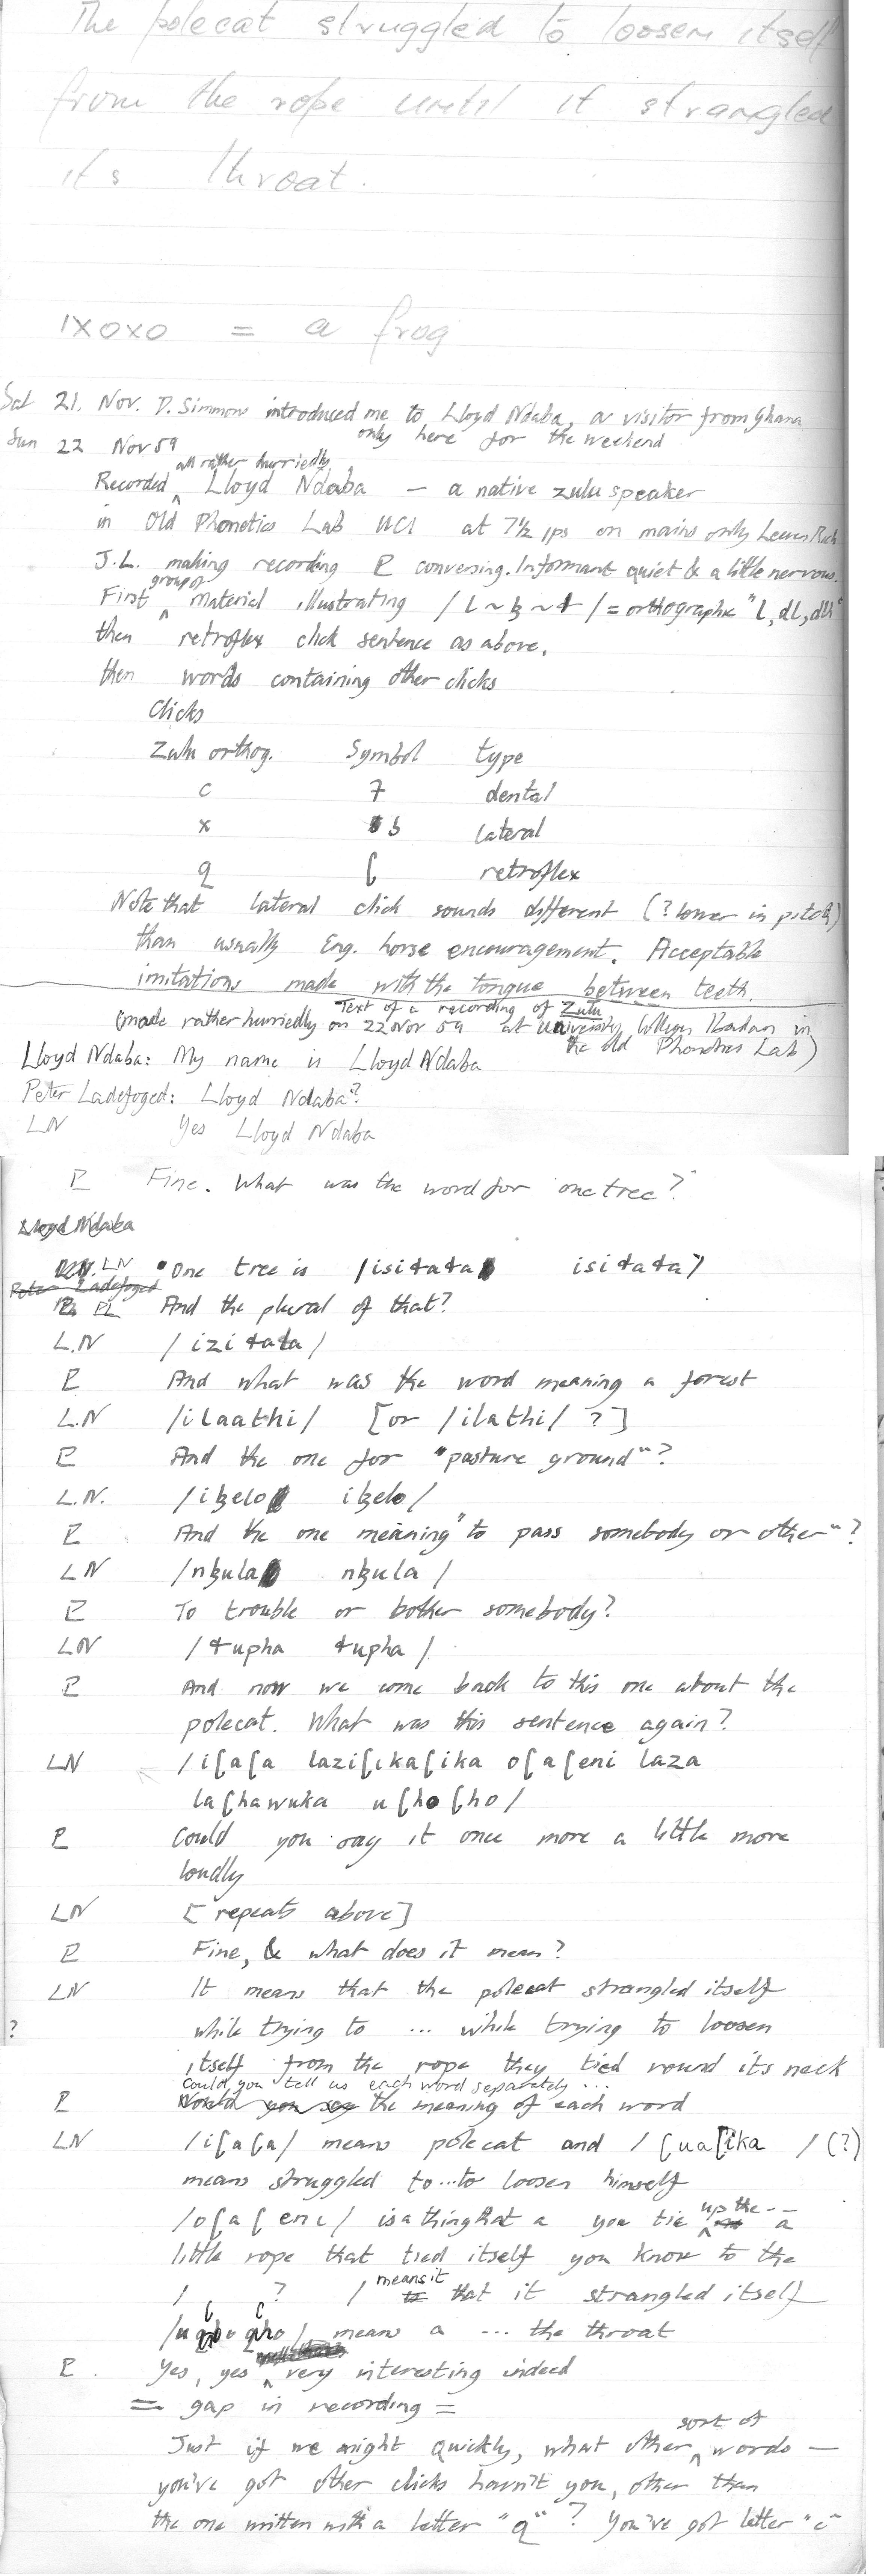 The polecat struggled to loosen itself
from the rope until it strangled
its throat.
ixoxo = a frog
Sat 21. Nov. D. Simmons introduced me to Lloyd Ndaba, a visitor from Ghana
only here for the weekend
Sun 22 Nov 59
all rather hurriedly
Recorded ‸ Lloyd Ndaba — a native zulu speaker
in Old Phonetics Lab UCI at 7½ ips on mains only
J.L. making recording P conversing. Informant quiet & a little nervous.
group of
First ‸ material illustrating / l ~ ɮ ~ ɬ / = orthographic "l, dl, dlh"
then retroflex click sentence as above.
then words containing other clicks
Clicks
Zulu orthog. Symbol type
c ʇ dental
x ʖ lateral
q ʗ retroflex
Note that lateral click sounds different (? lower in pitch)
than usually Eng. horse encouragement. Acceptable
imitations made with the tongue between teeth.
Text of a recording of Zulu
(made rather hurriedly on 22 Nov 59 at University College Ibadan in
the old Phonetics Lab)
Lloyd Ndaba: My name is Lloyd Ndaba
Peter Ladefoged: Lloyd Ndaba?
LN Yes Lloyd Ndaba
P Fine. What was the word for one tree?
Lloyd Ndaba
LN One tree is /isiɬaɬa isiɬaɬa/
Peter Ladefoged
PL And the plural of that?
L.N /iziɬaɬa/
P And what was the word meaning a forest
L.N /ilaathi/ [or /ilathi/ ?]
P And the one for "pasture ground"?
L.N. /iɮelo iɮelo/
P And the one meaning "to pass somebody or other"?
LN /nɮula nɮula/
P To trouble or bother somebody?
LN /ɬupha ɬupha/
P And now we come back to this one about the
polecat. What was this sentence again?
LN /iʗaʗa laziʗikaʗika oʗaʗeni laza
laʗhawuka uʗhoʗho/
P Could you say it once more a little more
loudly
LN [repeats above]
P Fine, & what does it mean?
LN It means that the polecat strangled itself
? while trying to ... while trying to loosen
itself from the rope they tied round its neck
Could you tell us each word separately ...
P Would you say the meaning of each word
LN /iʗaʗa/ means polecat and /ʗuaʗika /(?)
means struggled to...to loosen himself
up the --
/oʗaʗeni/ is a thing that a you tie ‸ a
little rope that tied itself you know to the
means it
/ ? / that it strangled itself
/uʗhoʗho/ means a ... the throat
P. Yes, yes ‸ very interesting indeed
= gap in recording =
sort of
Just if we might quickly, what other ‸ words —
you've got other clicks haven't you, other than
the one written with a letter "q"? You've got letter "c"